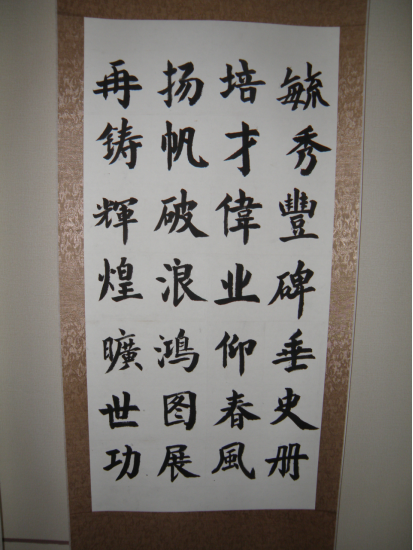 毓秀豐碑垂史册
培才偉业仰春風
扬帆破浪鴻图展
再铸輝煌曠世功